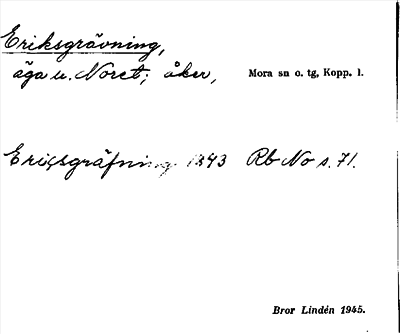 Eriksgrävning,
äga u. Noret; åker, Mora sn o. tg, Kopp. l.
Ericsgräfning 1843 Rb No s. 71.
Bror Lindén 1945.